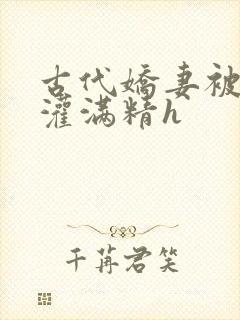 古代娇妻被
灌满精h
千苒君笑